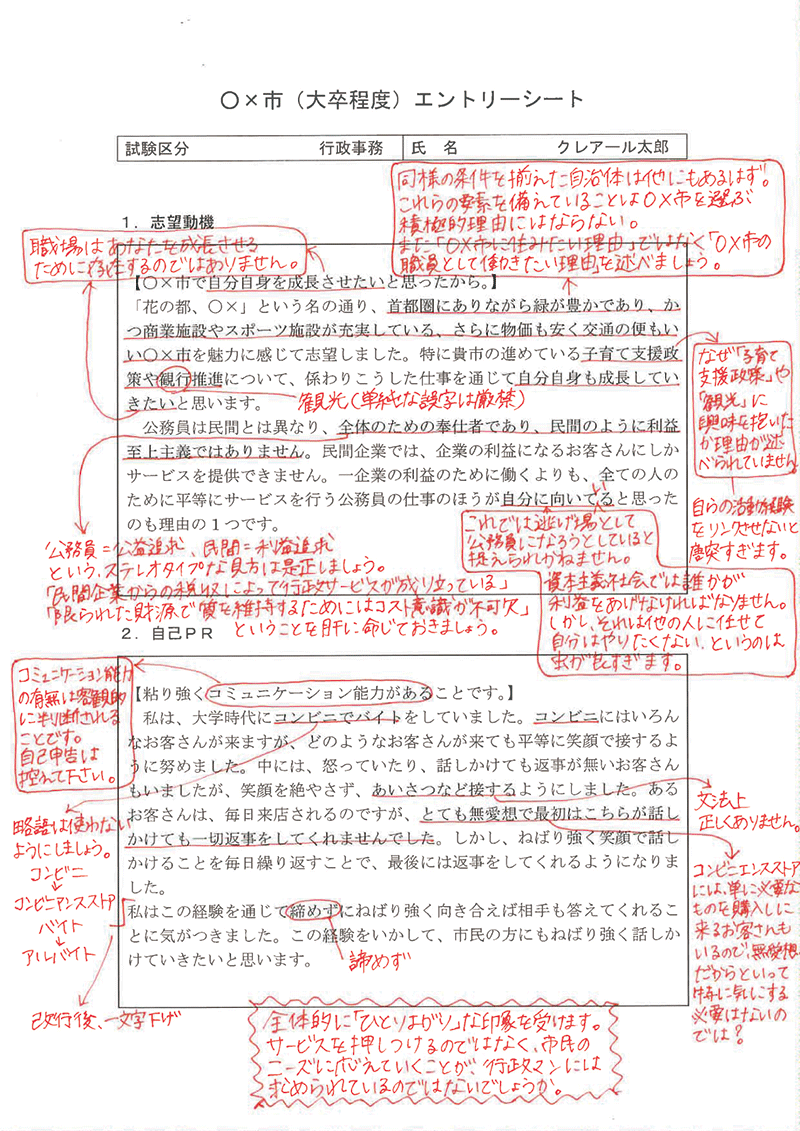 〇×市（大卒程度）エントリーシート
試験区分 行政事務 氏 名 クレアール太郎
同様の条件を揃えた自治体は他にもあるはず。
これらの要素を備えていることは〇×市を選ぶ
積極的理由にはならない。
また「〇×市に住みたい理由」ではなく「〇×市の
職員として働きたい理由」を述べましょう。
1．志望動機
職場はあなたを成長させる
ために存在するのではありません。
【〇×市で自分自身を成長させたいと思ったから。】
「花の都、〇×」という名の通り、首都圏にありながら緑が豊かであり、か
つ商業施設やスポーツ施設が充実している、さらに物価も安く交通の便もい
い〇×市を魅力に感じて志望しました。特に貴市の進めている子育て支援政
策や観行推進について、係わりこうした仕事を通じて自分自身も成長してい
きたいと思います。
観光(単純な誤字は厳禁)
なぜ「子育て
支援政策」や
「観光」に
興味を抱いた
か理由が述
べられていません。
自らの活動経験
をリンクさせないと
唐突すぎます。
公務員は民間とは異なり、全体のための奉仕者であり、民間のように利益
至上主義ではありません。民間企業では、企業の利益になるお客さんにしか
サービスを提供できません。一企業の利益のために働くよりも、全ての人の
ために平等にサービスを行う公務員の仕事のほうが自分に向いてると思った
い
のも理由の１つです。
これでは逃げ場として
公務員になろうとしていると
捉えられかねません。
資本主義社会では誰かが
利益をあげなければなりません。
しかし、それは他の人に任せて
自分はやりたくない、というのは
虫が良すぎます。
公務員＝公益追求、民間＝利益追求
という、ステレオタイプな見方は是正しましょう。
「民間企業からの税収によって行政サービスが成り立っている」
「限られた財源で質を維持するためにはコスト意識が不可欠」
ということを肝に命じておきましょう。
2．自己ＰＲ
コミュニケーション能力
の有無は客観的
に判断される
ことです。
自己申告は
控えて下さい。
【粘り強くコミュニケーション能力があることです。】
私は、大学時代にコンビニでバイトをしていました。コンビニにはいろん
なお客さんが来ますが、どのようなお客さんが来ても平等に笑顔で接するよ
うに努めました。中には、怒っていたり、話しかけても返事が無いお客さん
もいましたが、笑顔を絶やさず、あいさつなど接するようにしました。ある
お客さんは、毎日来店されるのですが、とても無愛想で最初はこちらが話し
かけても一切返事をしてくれませんでした。しかし、ねばり強く笑顔で話し
かけることを毎日繰り返すことで、最後には返事をしてくれるようになりま
した。
私はこの経験を通じて締めずにねばり強く向き合えば相手も答えてくれるこ
とに気がつきました。この経験をいかして、市民の方にもねばり強く話しか
けていきたいと思います。
諦めず
略語は使わない
ようにしましょう。
コンビニ
コンビニアンスストア
バイト
アルバイト
改行後、一文字下げ
文法上
正しくありません。
コンビニエンスストア
には、単に必要な
ものを購入しに
来るお客さんも
いるので、無愛想
だからといって
特に気にする
必要はないの
では?
全体的に「ひとりよがり」な印象を受けます。
サービスを押しつけるのではなく、市民の
ニーズに応えていくことが、行政マンには
求められているのではないでしょうか。